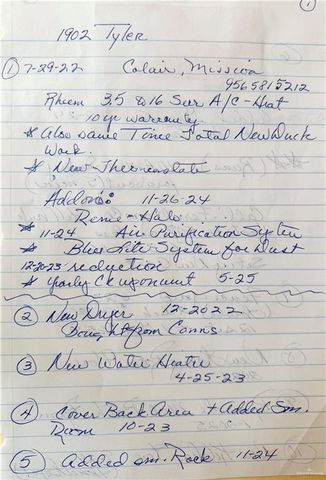 1
1902 Tyler
1 7-29-22 Colair, Mission
9565815212
Rheem 3.5 @16 Seer A/C-Heat
10 yr warranty.
* Also same Time Total New Duck
Work.
* New Thermostate
Addons: 11-26-24
Reme-Halo
* 11-24 Air Purification System
* Blue Lite System for Dust
12-20-23 reduction
* Yearly Ck up 5-25
2 New Dryer 12-2022
Bought from Conns
3 New Water Heater
4-25-23
4 Cover Back Area + Added Sm.
Room 10-23
5 Added sm. Rock 11-24